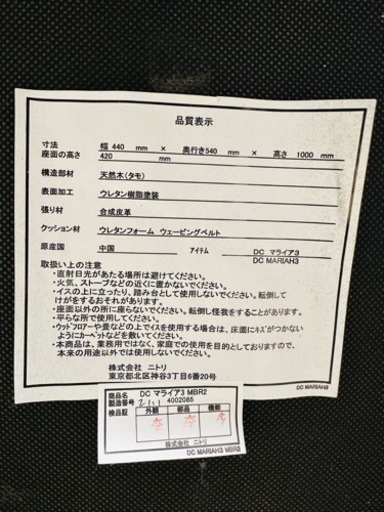 品質表示
寸法 幅 440 mm × 奥行き540 mm × 高さ 1000 mm
座面の高さ 420 mm
構造部材 天然木(タモ)
表面加工 ウレタン樹脂塗装
張り材 合成皮革
クッション材 ウレタンフォーム ウェービングベルト
原産国 中国 アイテム DC マライア3
DC MARIAH3
取扱い上の注意
・直射日光があたる場所は避けてください。
・火気、ストーブなどの近くに置かないでください。
・イスの上に立ったり、踏み台として使用しないでください。転倒して
けがをするおそれがあります。
・座面以外の所に座らないでください。転倒し怪我をすることがあります。
・平らな所で使用してください。
・ウッドフロアーや畳などの上でイスを使用する場合は、床面にキズがつかない
ようにカーペットなどを敷いてください。
・本商品は、業務用ではなく、家庭での使用を目的としておりますので、
本来の用途以外では使用しないでください。
株式会社 ニトリ
東京都北区神谷3丁目6番20号
DC MARIAH3
商品名 DC マライア3 MBR2
製造番号 4002085
検品証 外観 部品 機能
株式会社 ニトリ
DC MARIAH3 MBR2